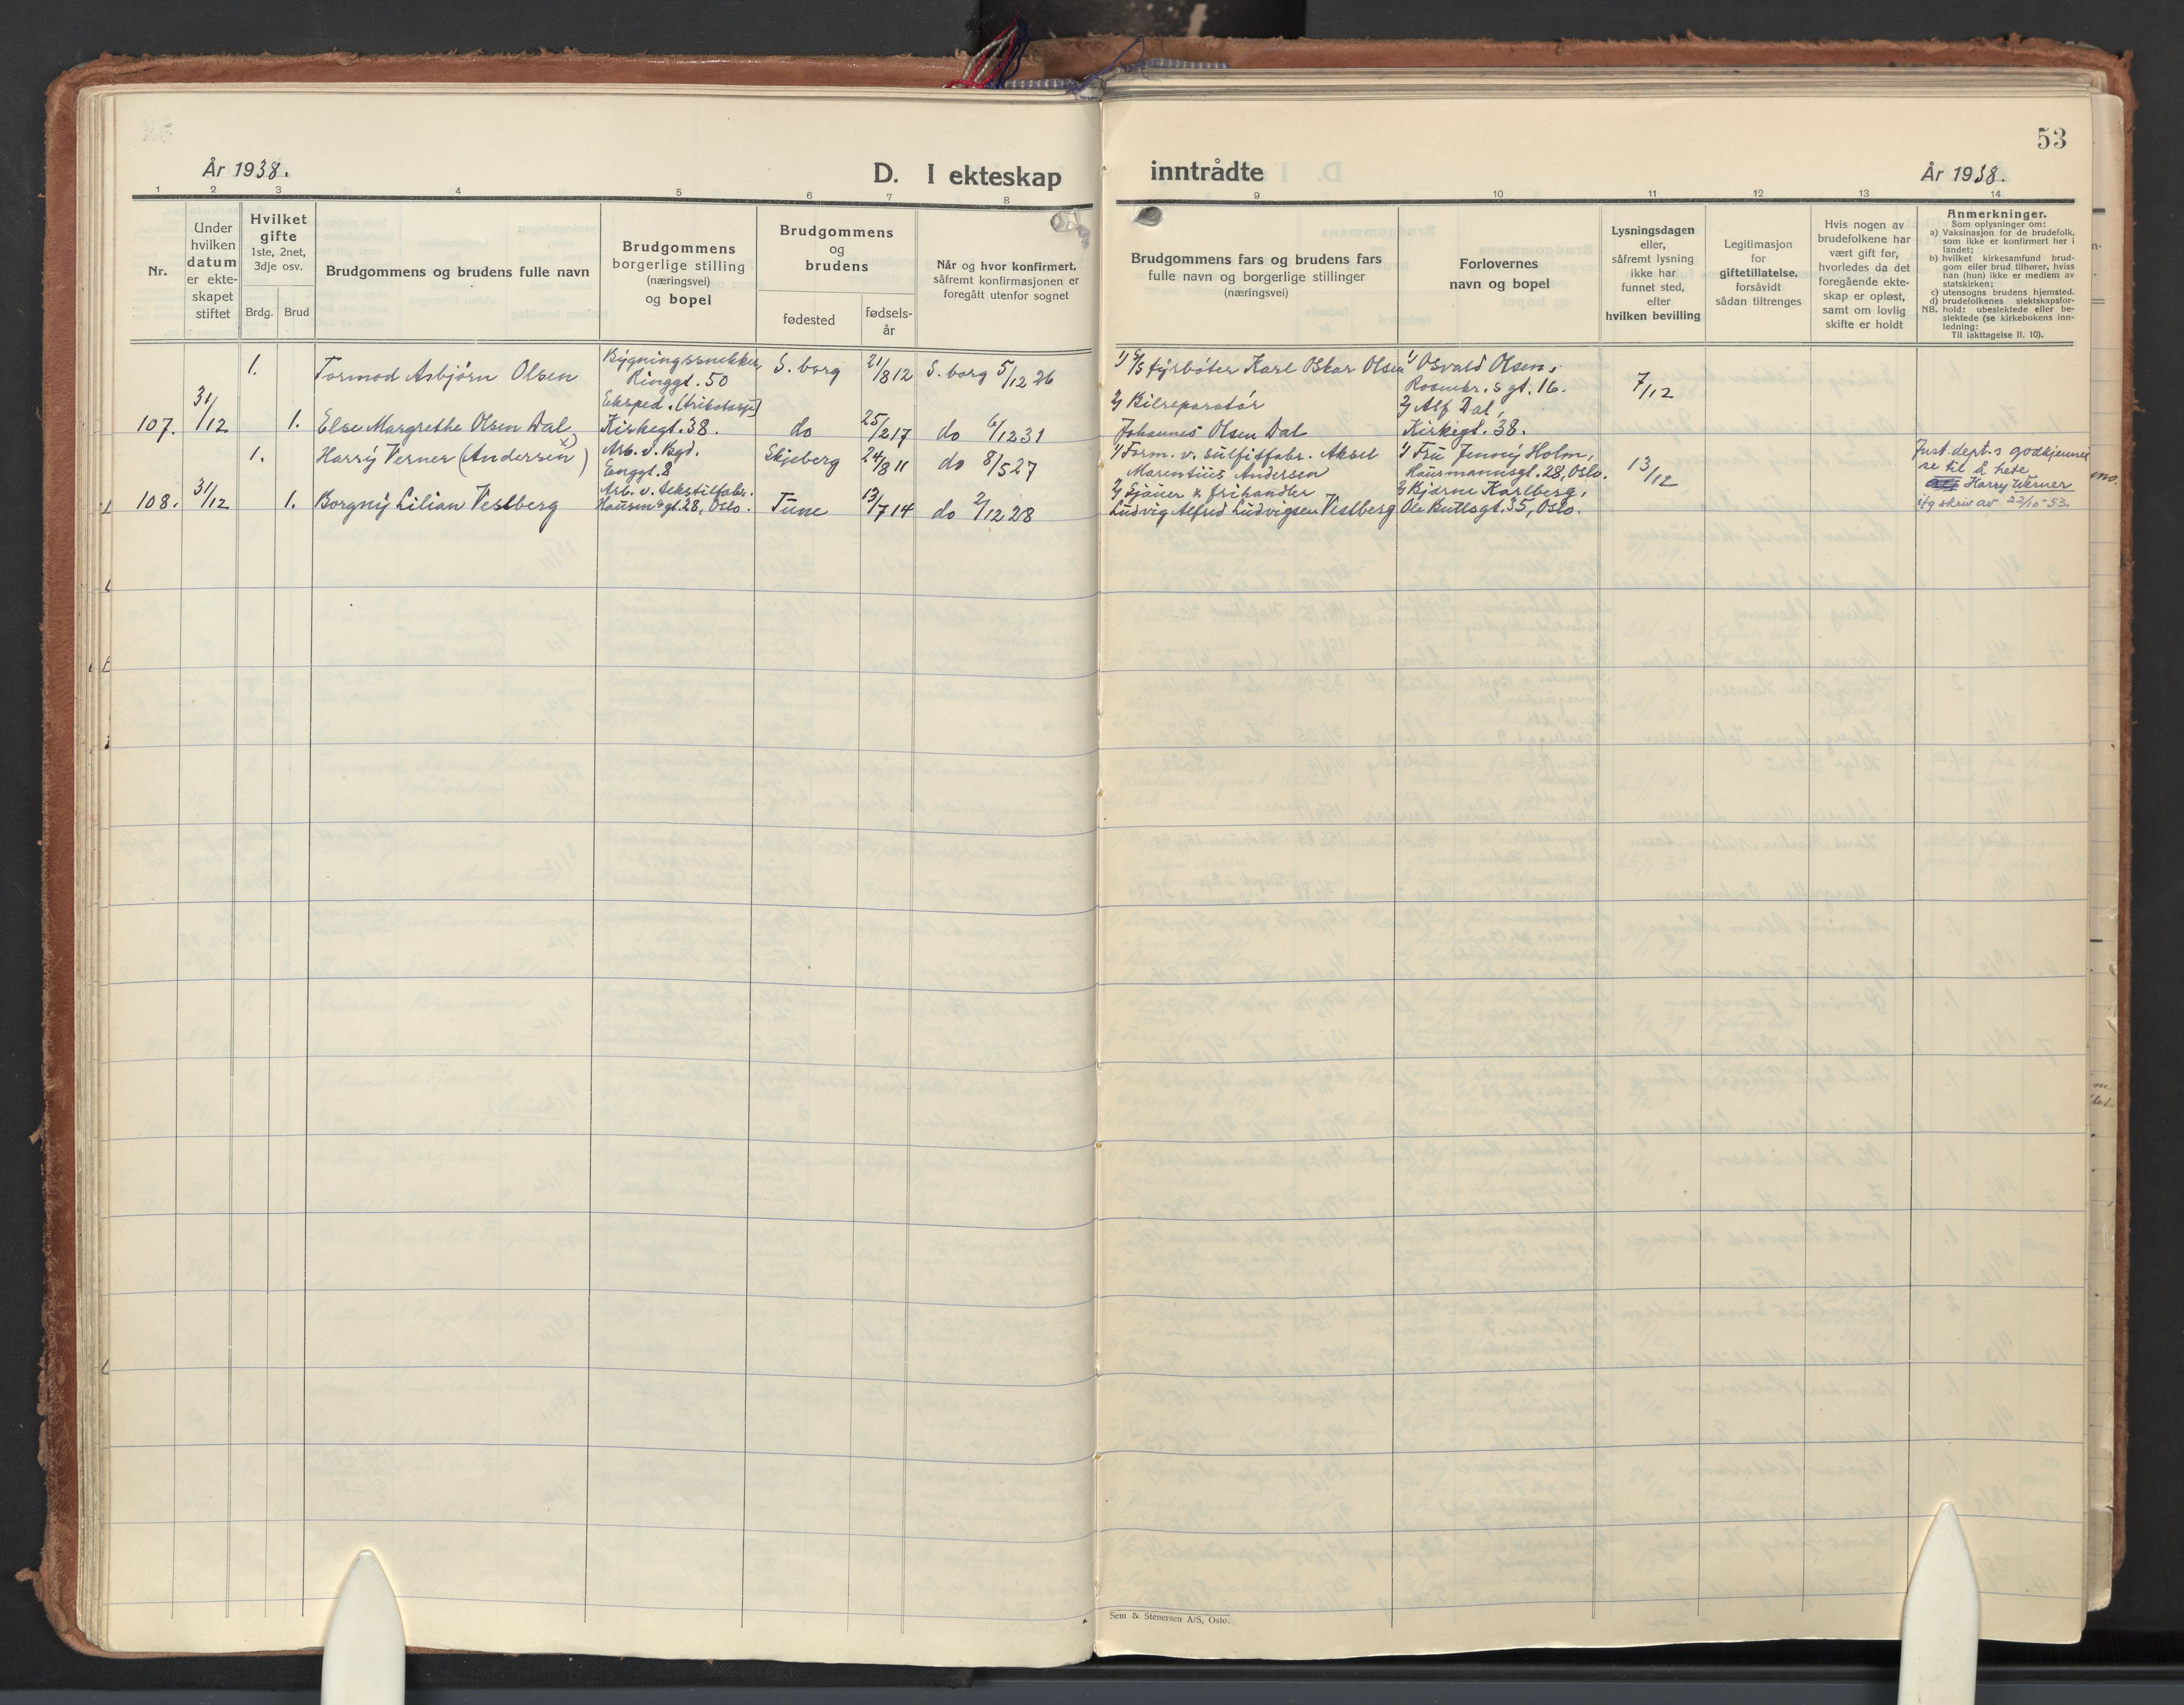 53
År 1938.
D. I ekteskap inntrådte
År 1938.
1 2 3 4 5 6 7 8 9 10 11 12 13 14
Nr.
Under hvilken datum er ekte-skapet stiftet
Hvilket gifte
1ste, 2net, 3dje osv.
Brdg. Brud
Brudgommens og brudens fulle navn
Brudgommens
borgerlige stilling
(næringsvei)
og bopel
Brudgommens
og
brudens
fødested
fødsels-
år
Når og hvor konfirmert,
såfremt konfirmasjonen er
foregått utenfor sognet
Brudgommens fars og brudens fars
fulle navn og borgerlige stillinger
(næringsvei)
Forlovernes
navn og bopel
Lysningsdagen
eller,
såfremt lysning
ikke har
funnet sted,
efter
hvilken bevilling
Legitimasjon
for
giftetillatelse,
forsåvidt
sådan tiltrenges
Hvis nogen av
brudefolkene har
vært gift før,
hvorledes da det
foregående ekte-
skap er opløst,
samt om lovlig
skifte er holdt
Anmerkninger.
Som oplysninger om:
a) Vaksinasjon for de brudefolk,
som ikke er konfirmert her i
landet;
b) hvilket kirkesamfund brud-
gom eller brud tilhører, hviss
han (hun) ikke er medlem av
statskirken;
c) utensogns brudens hjemsted.
d) brudefolkenes slektskapsfor-
NB. hold: ubeslektede eller be-
slektede (se kirkebokens inn-
ledning:
Til iakttagelse II. 10).
1. Tormod Asbjørn Olsen
Bygningssnekker,
Ringgt. 50
S. borg 21/8 12 S. borg 5/12 26
1) fyrbøter Karl Oskar Olsen
1) Osvald Olsen,
gt. 16.
7/12
107. 31/12 1. Else Margrethe Olsen Dal
Eksped. (trikotasje)
Kirkegt. 38.
do 25/2 17 do 6/12 31
2) Bilreparatør
Johannes Olsen Dal
2) Alf Dal,
Kirkegt. 38.
1. Harry Verner (Andersen x))
Arb. v. Bgd.
Enggt. 8
Skjeberg 24/8 11 do 8/5 27
1) Form. v. sulfitfabr. Aksel
Marentius Andersen
1) Fru Jenny Holm,
Hausmannsgt. 28, Oslo.
13/12
Just. dept.s godkjennel
se til å hete
Harry Werner
ifg skriv av 22/10-53.
108. 31/12 1. Borgny Lilian Vestberg
Arb. v. tekstilfabr.
Hausm.s gt. 28, Oslo.
Tune 13/7 14 do 2/12 28
2) Sjauer v. frihandler
Ludvig Alfred Ludvigsen Vestberg
2) Bjarne Karlberg,
Ole Bullsgt. 35, Oslo.
Sem & Stenersen A/S, Oslo.